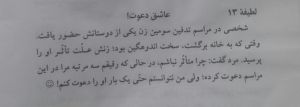 لطیفهٔ ۱۳
عاشق دعوت!
شخصی در مراسم تدفین سومین زن یکی از دوستانش حضور یافت.
وقتی که به خانه برگشت، سخت اندوهگین بود؛ زنش علّت تأثّر او را
پرسید. مرد گفت: چرا متأثّر نباشم، در حالی که رفیقم سه مرتبه مرا در
مراسم دعوت کرده؛ ولی من نتوانستم حتّی یک بار او را دعوت کنم! ☺